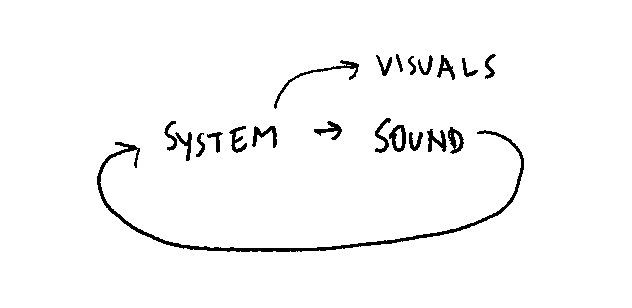 VISUALS
SYSTEM → SOUND